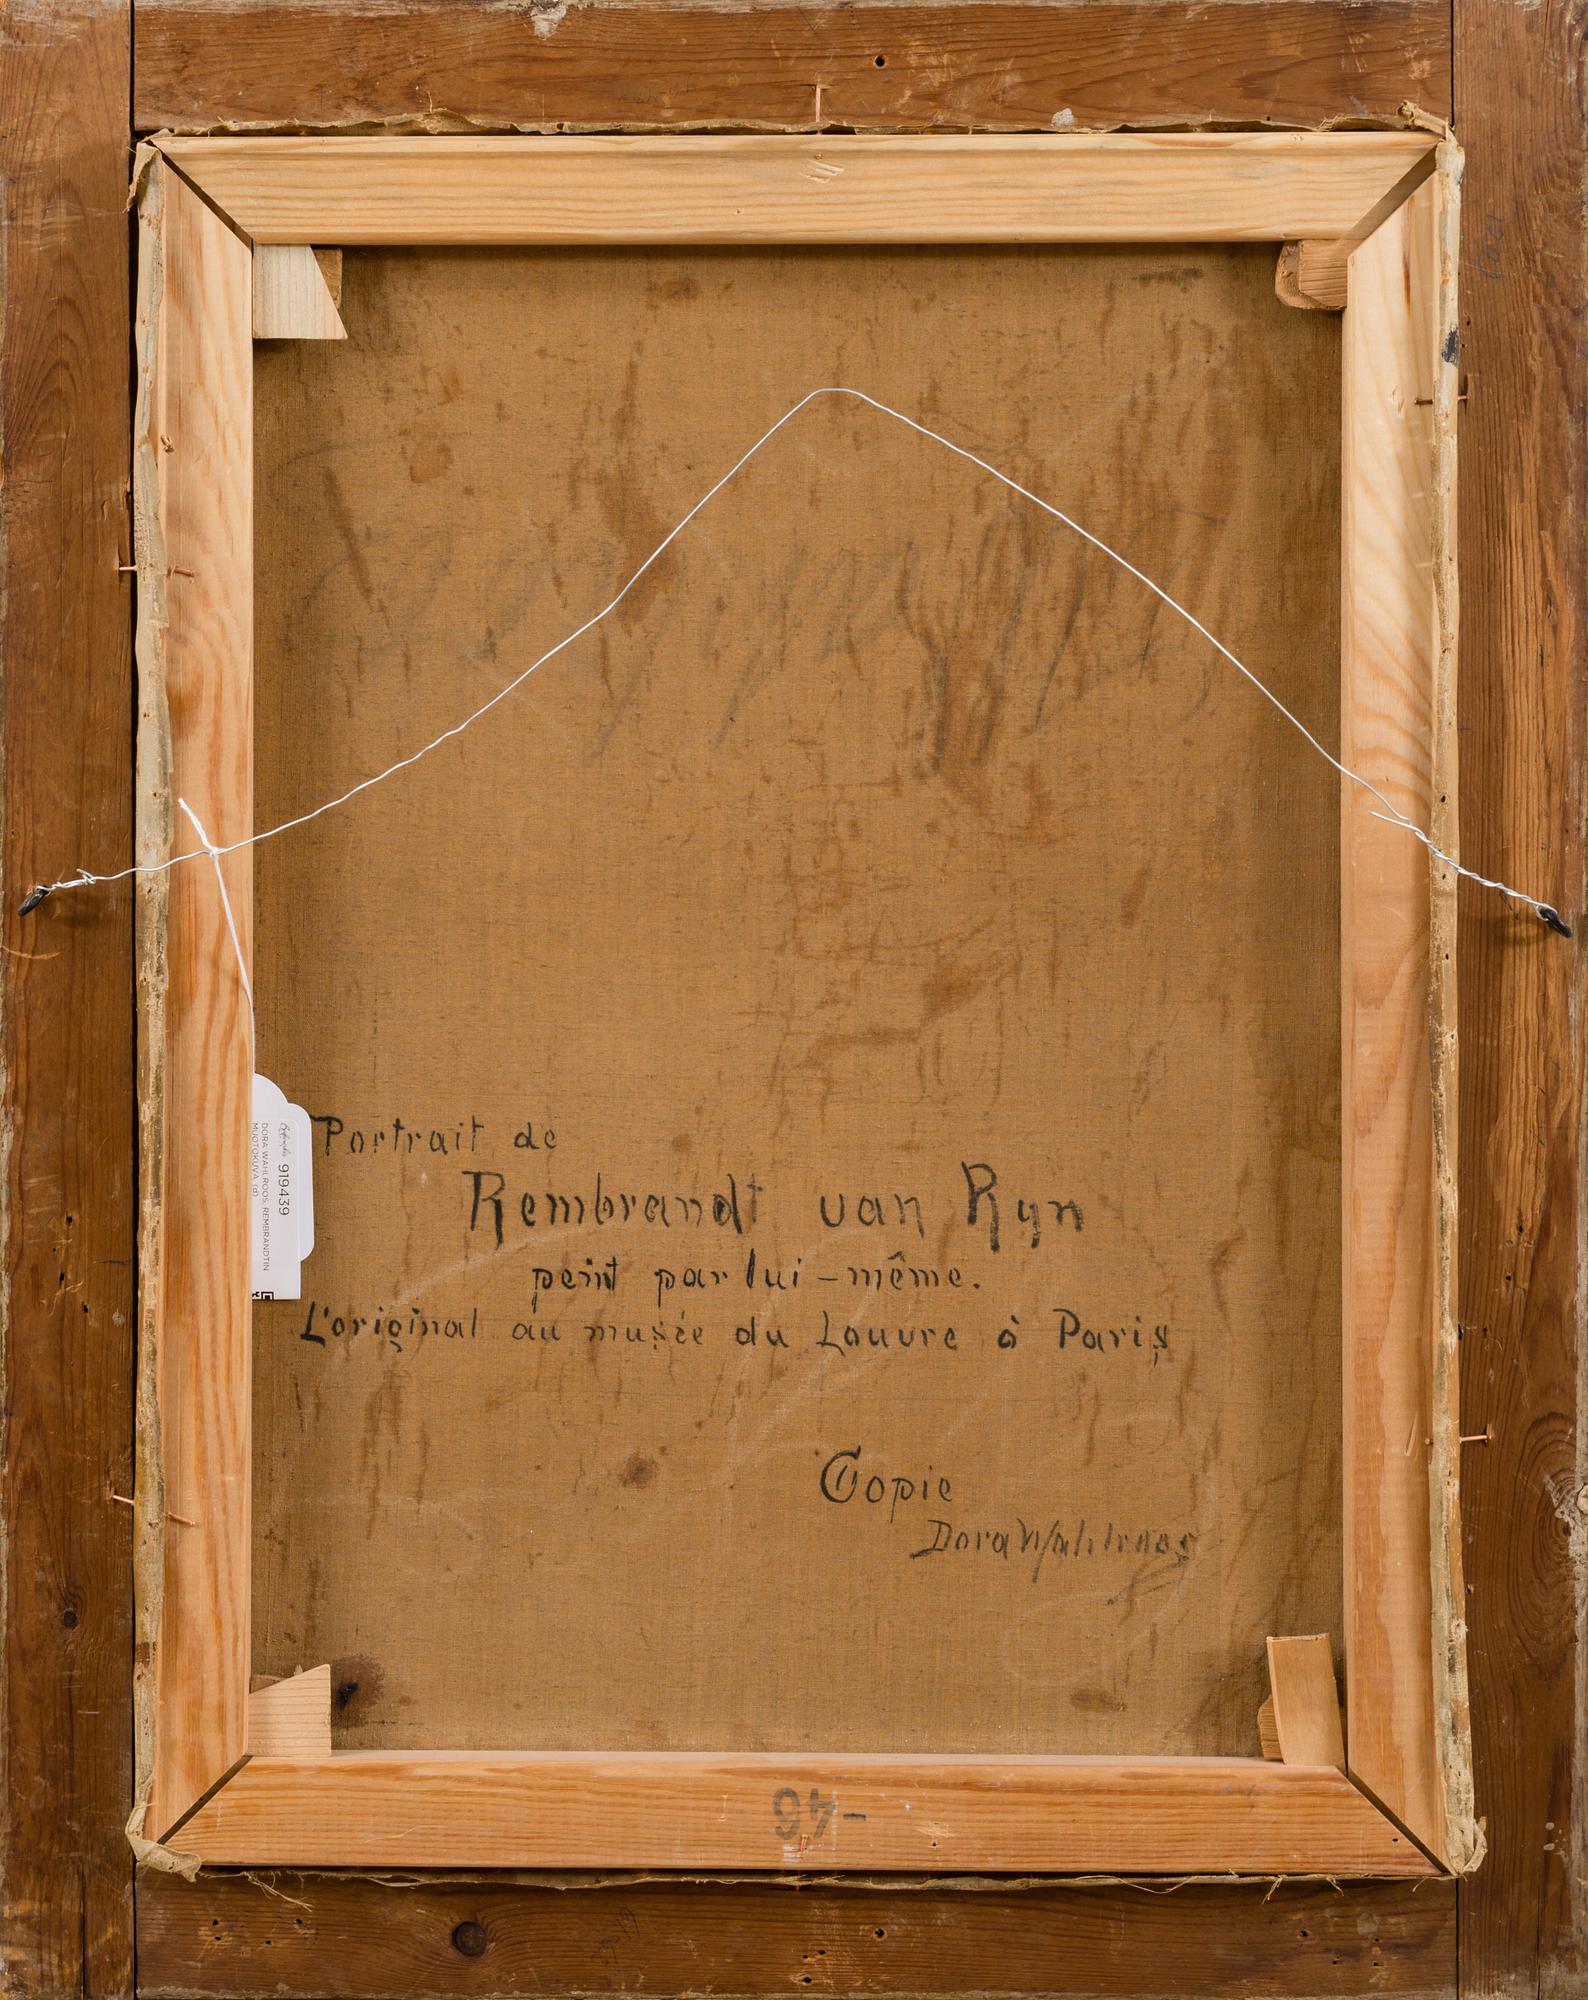 Portrait de
Rembrandt van Ryn
peint par lui-même.
L'original au musée du Louvre à Paris
Copie
Dora Wahlroos
919439
DORA WAHLROOS: REMBRANDTIN
MUOTOKUVA (d)
-46